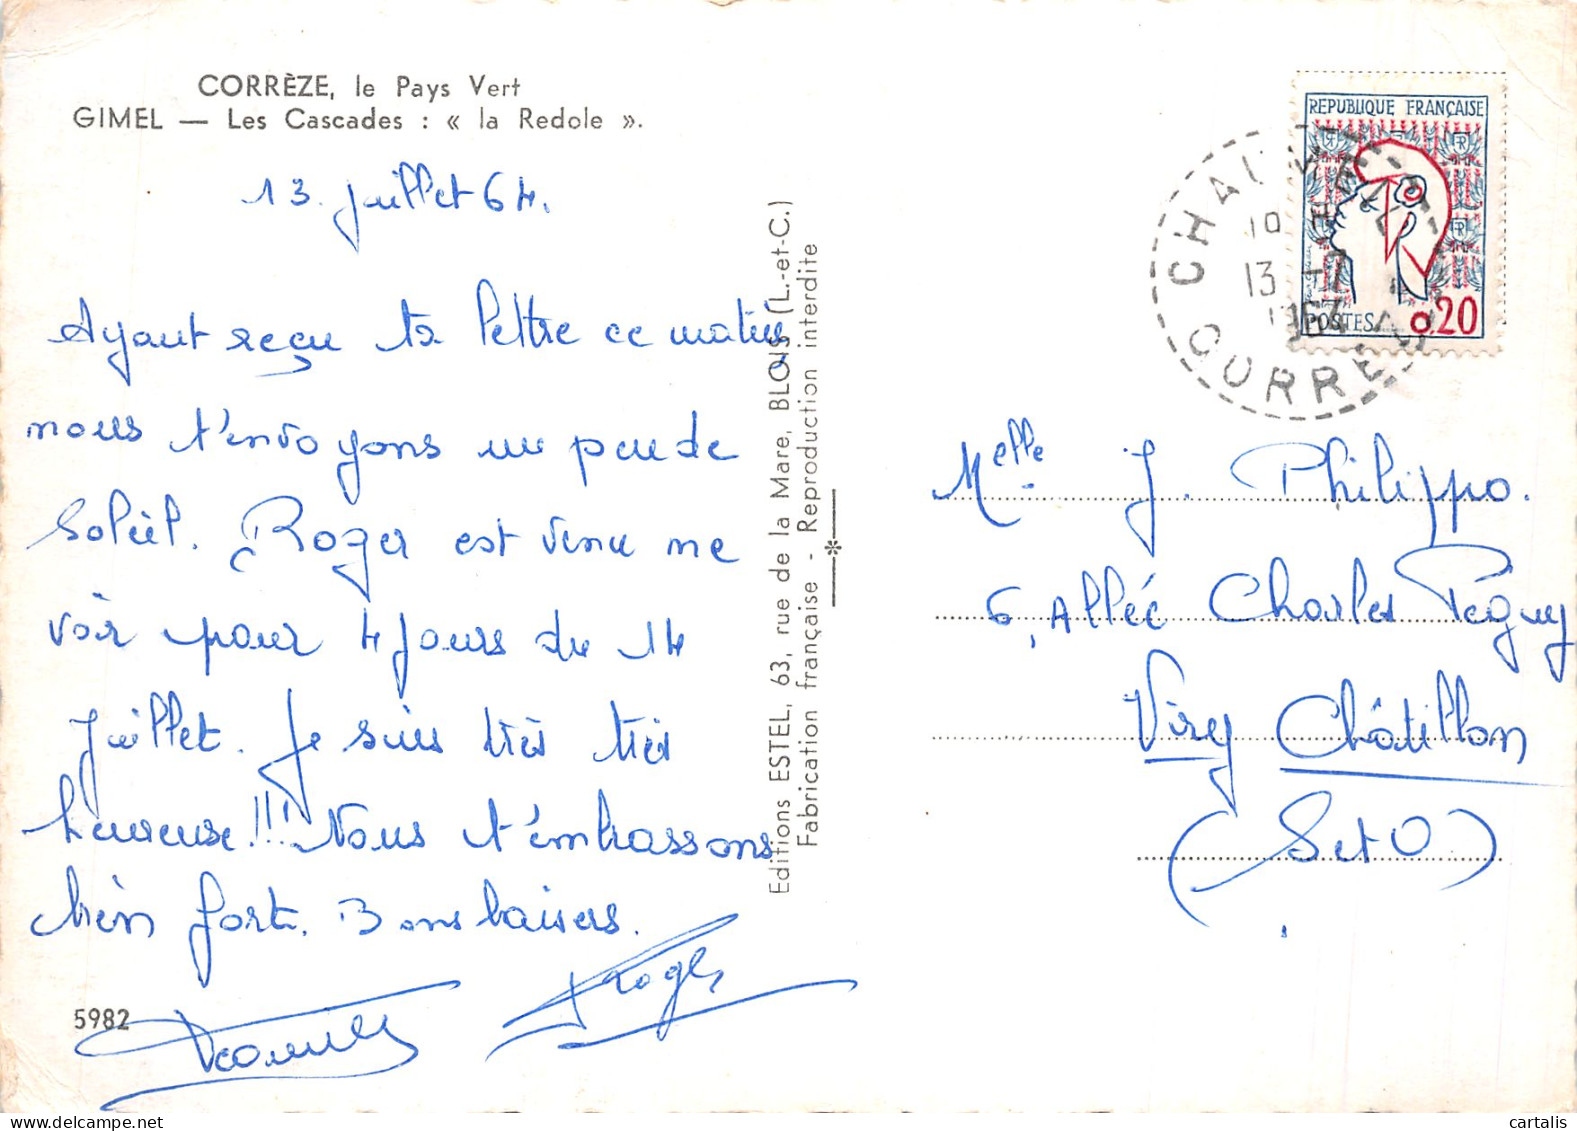 CORRÈZE, le Pays Vert
GIMEL — Les Cascades : « la Redole ».
13 juillet 64.
Ayant reçu ta lettre ce matin,
nous t'envoyons un peu de
Soleil. Roger est venu me
voir pour 4 jours du 14
Juillet. Je suis très très
heureuse!!! Nous t'embrassons
bien fort. Bons baisers.
Roger
5982
Editions ESTEL, 63, rue de la Mare, BLOIS (L.-et-C.)
Fabrication française - Reproduction interdite
REPUBLIQUE FRANÇAISE
POSTES 0,20
13 -7
1964
Melle J. Philippo.
6, Allée Charles Péguy
Viry Châtillon
(S et O)
cartalis